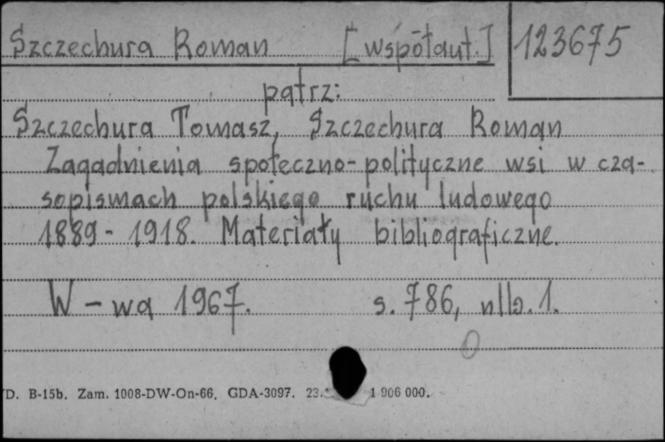 Szczechura Roman [współaut.] 123675
patrz:
Szczechura Tomasz, Szczechura Roman
Zagadnienia społeczno-polityczne wsi w cza-
sopismach polskiego ruchu ludowego
1889-1918. Materiały bibliograficzne.
W-wa 1967. s. 786, nlb. 1.
D. B-15b. Zam. 1008-DW-On-66. GDA-3097. 23. 1 906 000.